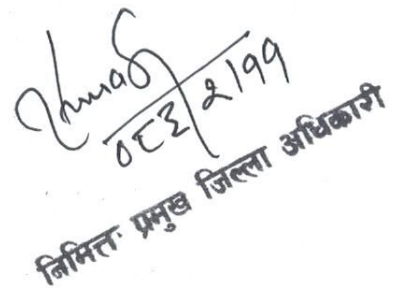 ०८३/२/११
निमित्त प्रमुख जिल्ला अधिकारी